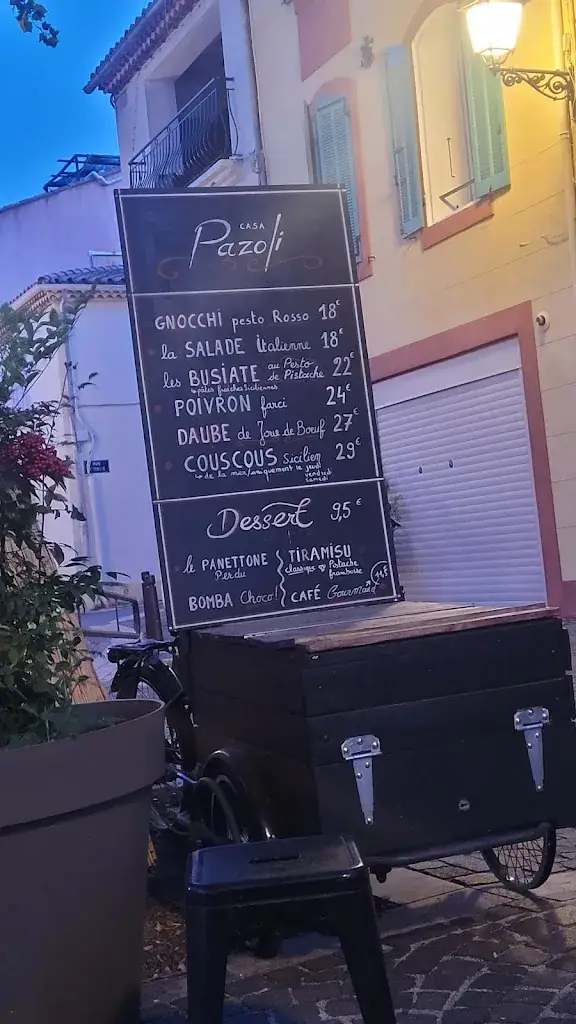 CASA
Pazoli
GNOCCHI pesto Rosso 18€
la SALADE Italienne 18€
les BUSIATE au Pesto de Pistache 22€
↳ pâtes fraîches Siciliennes
POIVRON farci 24€
DAUBE de Joue de Bœuf 27€
COUSCOUS Sicilien 29€
↳ de la mer/uniquement le jeudi vendredi samedi
Dessert 9,5€
le PANETTONE Perdu
BOMBA Choco!
TIRAMISU
classique Pistache framboise
CAFÉ Gourmand
RUE